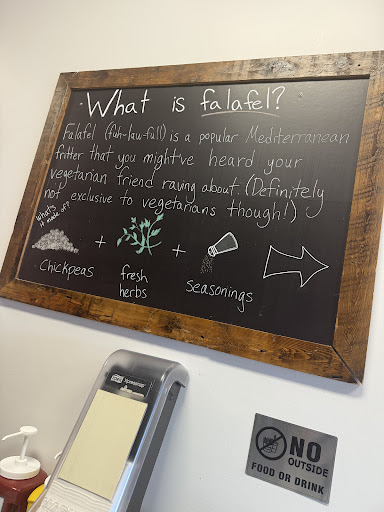 What is falafel?
Falafel (fuh-law-full) is a popular Mediterranean
fritter that you might've heard your
vegetarian friend raving about. (Definitely
not exclusive to vegetarians though!)
What's
it made of?
+
+
Chickpeas
fresh
herbs
seasonings
NO
OUTSIDE
FOOD OR DRINK